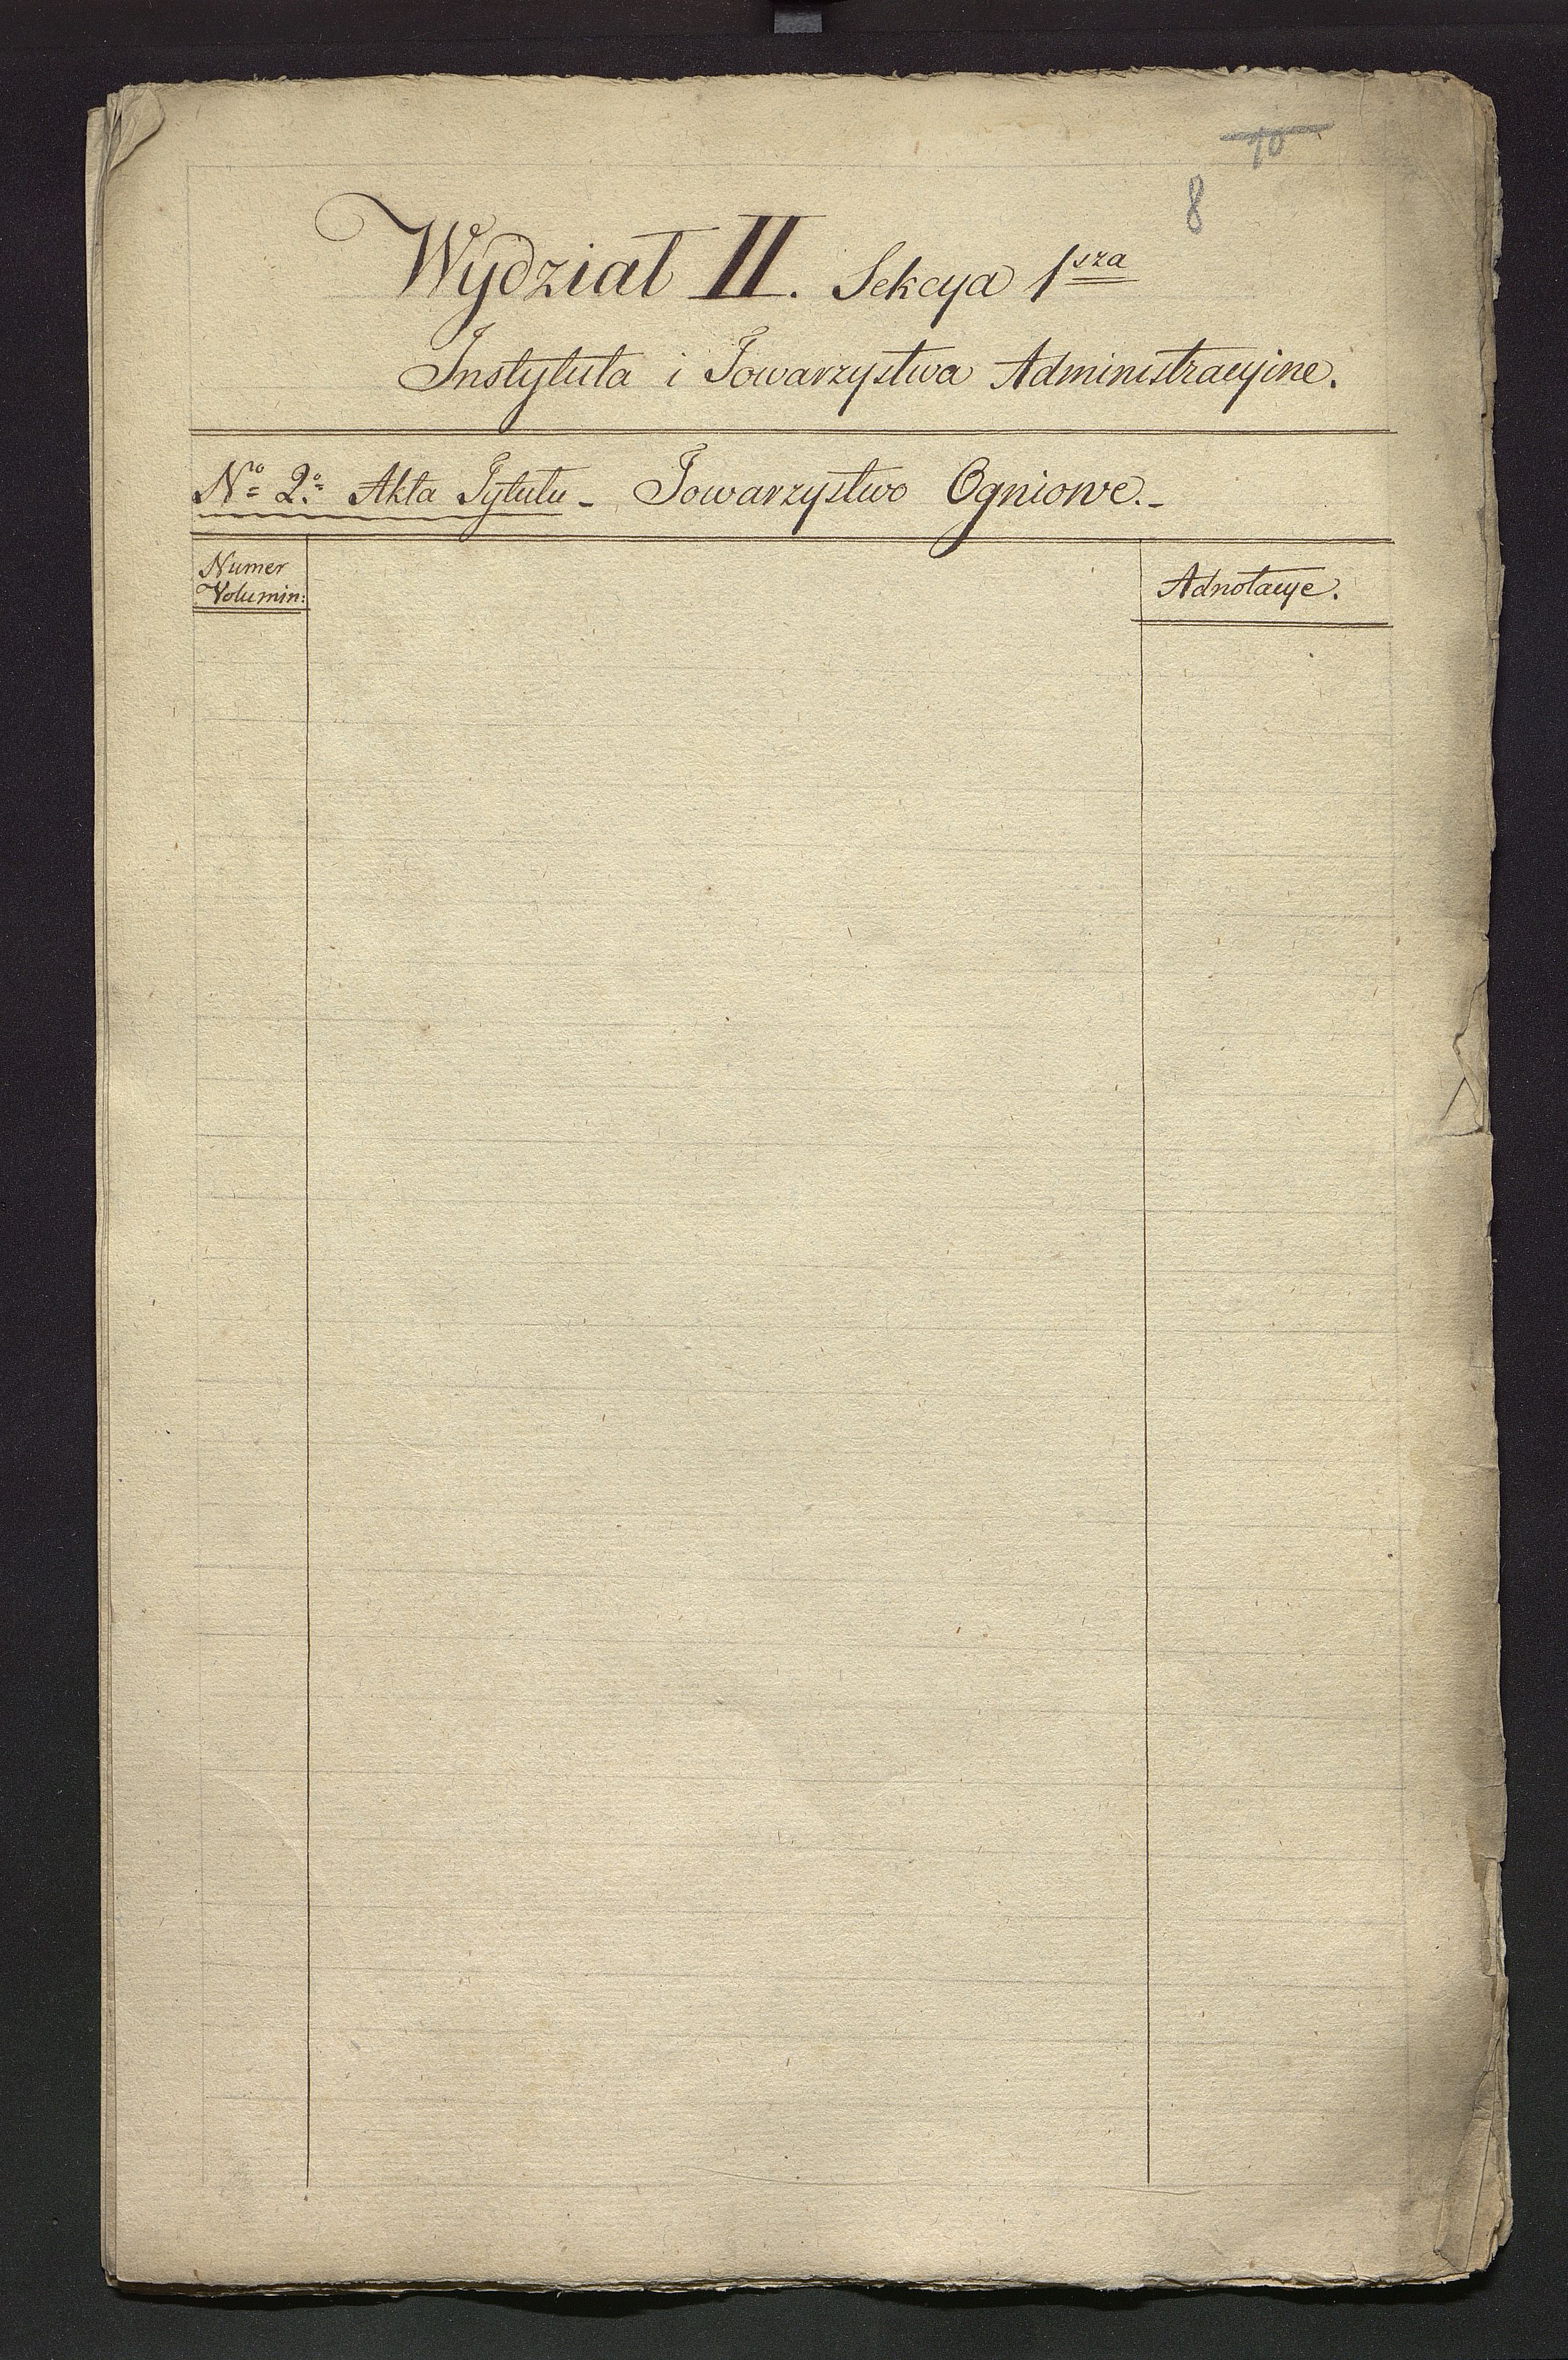 10
8
Wydział II. Sekcya 1sza
Instytuta i Towarzystwa Administracyine.
No 2o Akta Tytułu - Towarzystwo Ogniowe.-
Numer
Volumin:
Adnotacye.